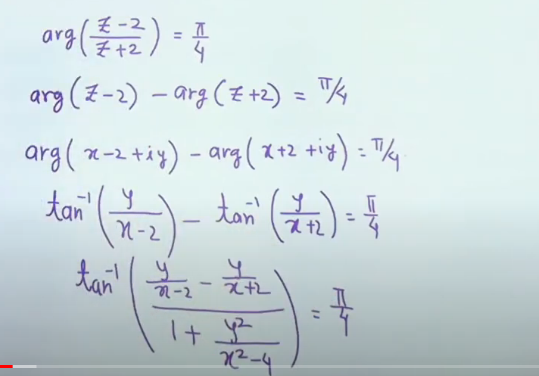 arg((z-2)/(z+2)) = π/4
arg(z-2) - arg(z+2) = π/4
arg(x-2+iy) - arg(x+2+iy) = π/4
tan⁻¹(y/(x-2)) - tan⁻¹(y/(x+2)) = π/4
tan⁻¹((y/(x-2) - y/(x+2))/(1 + y²/(x²-4))) = π/4